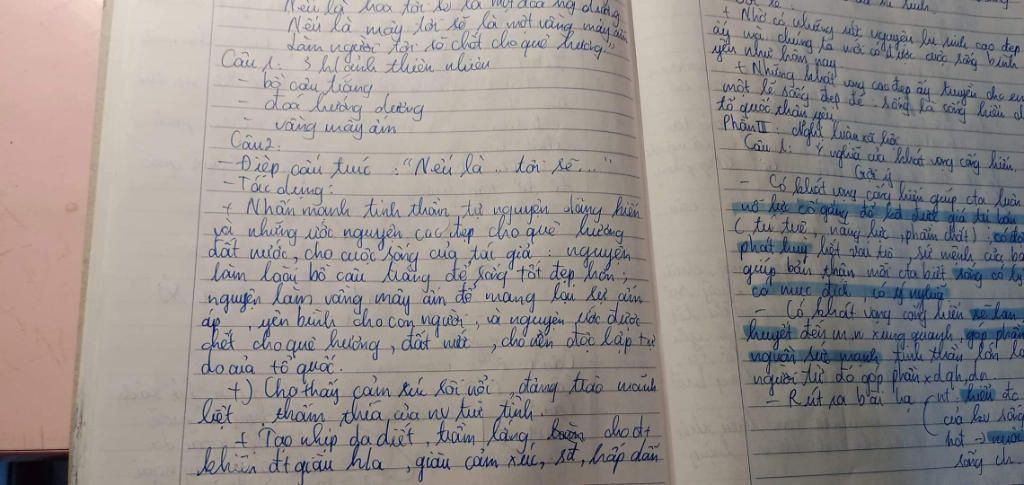 Nếu là hoa tôi sẽ là một đóa hướng dương
Nếu là mây tôi sẽ là một vầng mây ấm
Làm người tôi sẽ chết cho quê hương"
Câu 1: 3 h/ảnh thiên nhiên
- bồ câu trắng
- đoá hướng dương
- vầng mây ấm
Câu 2:
- Điệp cấu trúc : "Nếu là ... tôi sẽ ..."
- Tác dụng:
+ Nhấn mạnh tinh thần tự nguyện dâng hiến
và những ước nguyện cao đẹp cho quê hương
đất nước, cho cuộc sống của tác giả : nguyện
làm loài bồ câu trắng để sống tốt đẹp hơn;
nguyện làm vầng mây ấm để mang lại sự ấm
áp, yên bình cho con người, và nguyện ước được
chết cho quê hương, đất nước, cho nền độc lập tự
do của tổ quốc.
+) Cho thấy cảm xúc sôi nổi, dâng trào mãnh
liệt, thấm thía của nv trữ tình.
+ Tạo nhịp da diết, trầm lắng, cho dt
khiến dt giàu h/a, giàu cảm xúc, sd, hấp dẫn
+ Nhờ có những sự nguyện hi sinh cao đẹp
ấy mà chúng ta mới có được cuộc sống bình
yên như hôm nay
+ Những khát vọng cao đẹp ấy truyền cho em
một lẽ sống đẹp đẽ : sống là cống hiến
tổ quốc thân yêu.
Phần II : Nghị luận xã hội
Câu 1: Ý nghĩa của khát vọng cống hiến.
Gợi ý
- Có khát vọng cống hiến giúp cta luôn
nỗ lực cố gắng để đạt được giá trị bản
(trí tuệ, năng lực, phẩm chất),
phát huy hết vai trò, sứ mệnh của bả
giúp bản thân mỗi cta biết sống có
có mục đích, có ý nghĩa
- Có khát vọng cống hiến sẽ lan
truyền đến m.n xung quanh góp phần
nguồn sức mạnh tinh thần lớn la
người từ đó góp phần x dựng, đn
- Rút ra bài học nt:
của
hđ →
sống